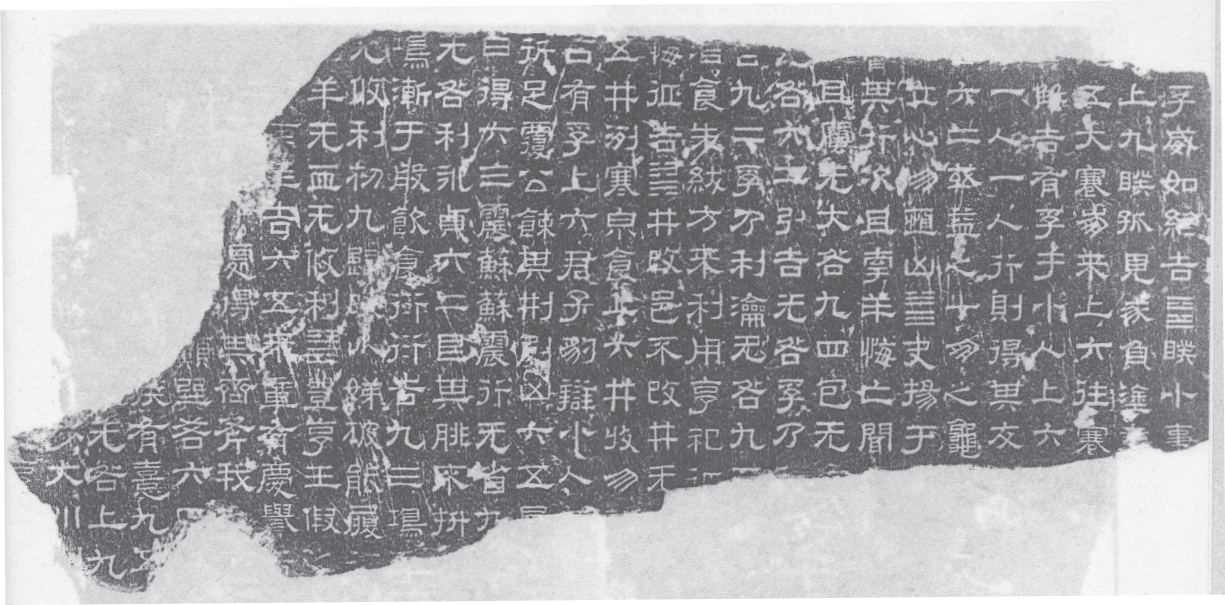 孚威如終吉䷥睽小事
上九睽孤見豕負塗
五大蹇朋来上六往蹇
解吉有孚于小人上六
一人一人行則得其友
六二或益之十朋之龜
立心勿恒凶䷪夬揚于
其行次且牽羊悔亡聞
且厲无大咎九四包无
咎六二引吉无咎孚乃
亡九二孚乃利瀹无咎九
酒食朱紱方来利用亨祀征
悔征吉䷯井改邑不改井无
五井冽寒泉食上六井收勿
占有孚上六君子豹辯小人
折足覆公餗其刑剭凶六五
日得六三震蘇蘇震行无省九
无咎利永貞六二艮其腓不拼
鴻漸于般飲食衎衎吉九三鴻
无攸利初九歸妹以娣跛能履
羊无血无攸利䷶豐亨王假
吉六五来章有慶譽
處得其齊斧我
頻巽吝六四
疾有憙九五
无咎上九
大川